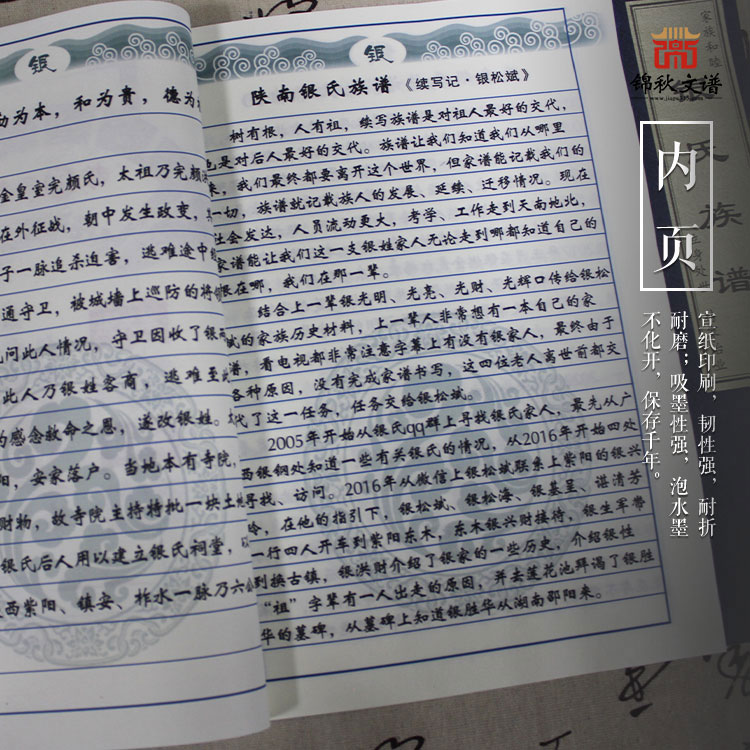 银
力为本，和为貴，德为
金皇室完颜氏，太祖乃完颜
在外征战，朝中发生政变，
子一脉追杀迫害，逃难途中
通守卫，被城墙上巡防的将
问此人情况，守卫因收了银
此人乃银姓客商，逃难至此
感念救命之恩，遂改银姓。
阳，安家落户。当地本有寺院，
财物，故寺院主持特批一块土地
银氏后人用以建立银氏祠堂，
西紫阳、镇安、柞水一脉乃六
银
陕南银氏族谱《续写记·银松斌》
树有根，人有祖，续写族谱是对祖人最好的交代，
也是对后人最好的交代。族谱让我们知道我们从哪里
来，我们最终都要离开这个世界，但家谱能记载我们的
一切，族谱就记载族人的发展、延续、迁移情况。现在
社会发达，人员流动更大，考学、工作走到天南地北，
家谱能让我们这一支银姓家人无论走到哪都知道自己的
根在哪，我们在那一辈。
结合上一辈银光明、光亮、光财、光辉口传给银松
斌的家族历史材料，上一辈人非常想有一本自己的家
谱，看电视都非常注意字幕上有没有银家人，最终由于
各种原因，没有完成家谱书写，这四位老人离世前都交
代了这一任务，任务交给银松斌。
2005年开始从银氏qq群上寻找银氏家人，最先从广
西银钢处知道一些有关银氏的情况，从2016年开始四处
寻找、访问。2016年从微信上银松斌联系上紫阳的银兴
岭，在他的指引下，银松斌、银松海、银基呈、谌清芳
一行四人开车到紫阳东木，东木银兴财接待，银生军带
到换古镇，银洪财介绍了银家的一些历史，介绍银性
“祖”字辈有一人出走的原因，并去莲花池拜谒了银胜
华的墓碑，从墓碑上知道银胜华从湖南邵阳来。
家族和睦
锦秋文谱
氏族谱
内页
宣纸印刷，韧性强，耐折
耐磨；吸墨性强，泡水墨
不化开，保存千年。